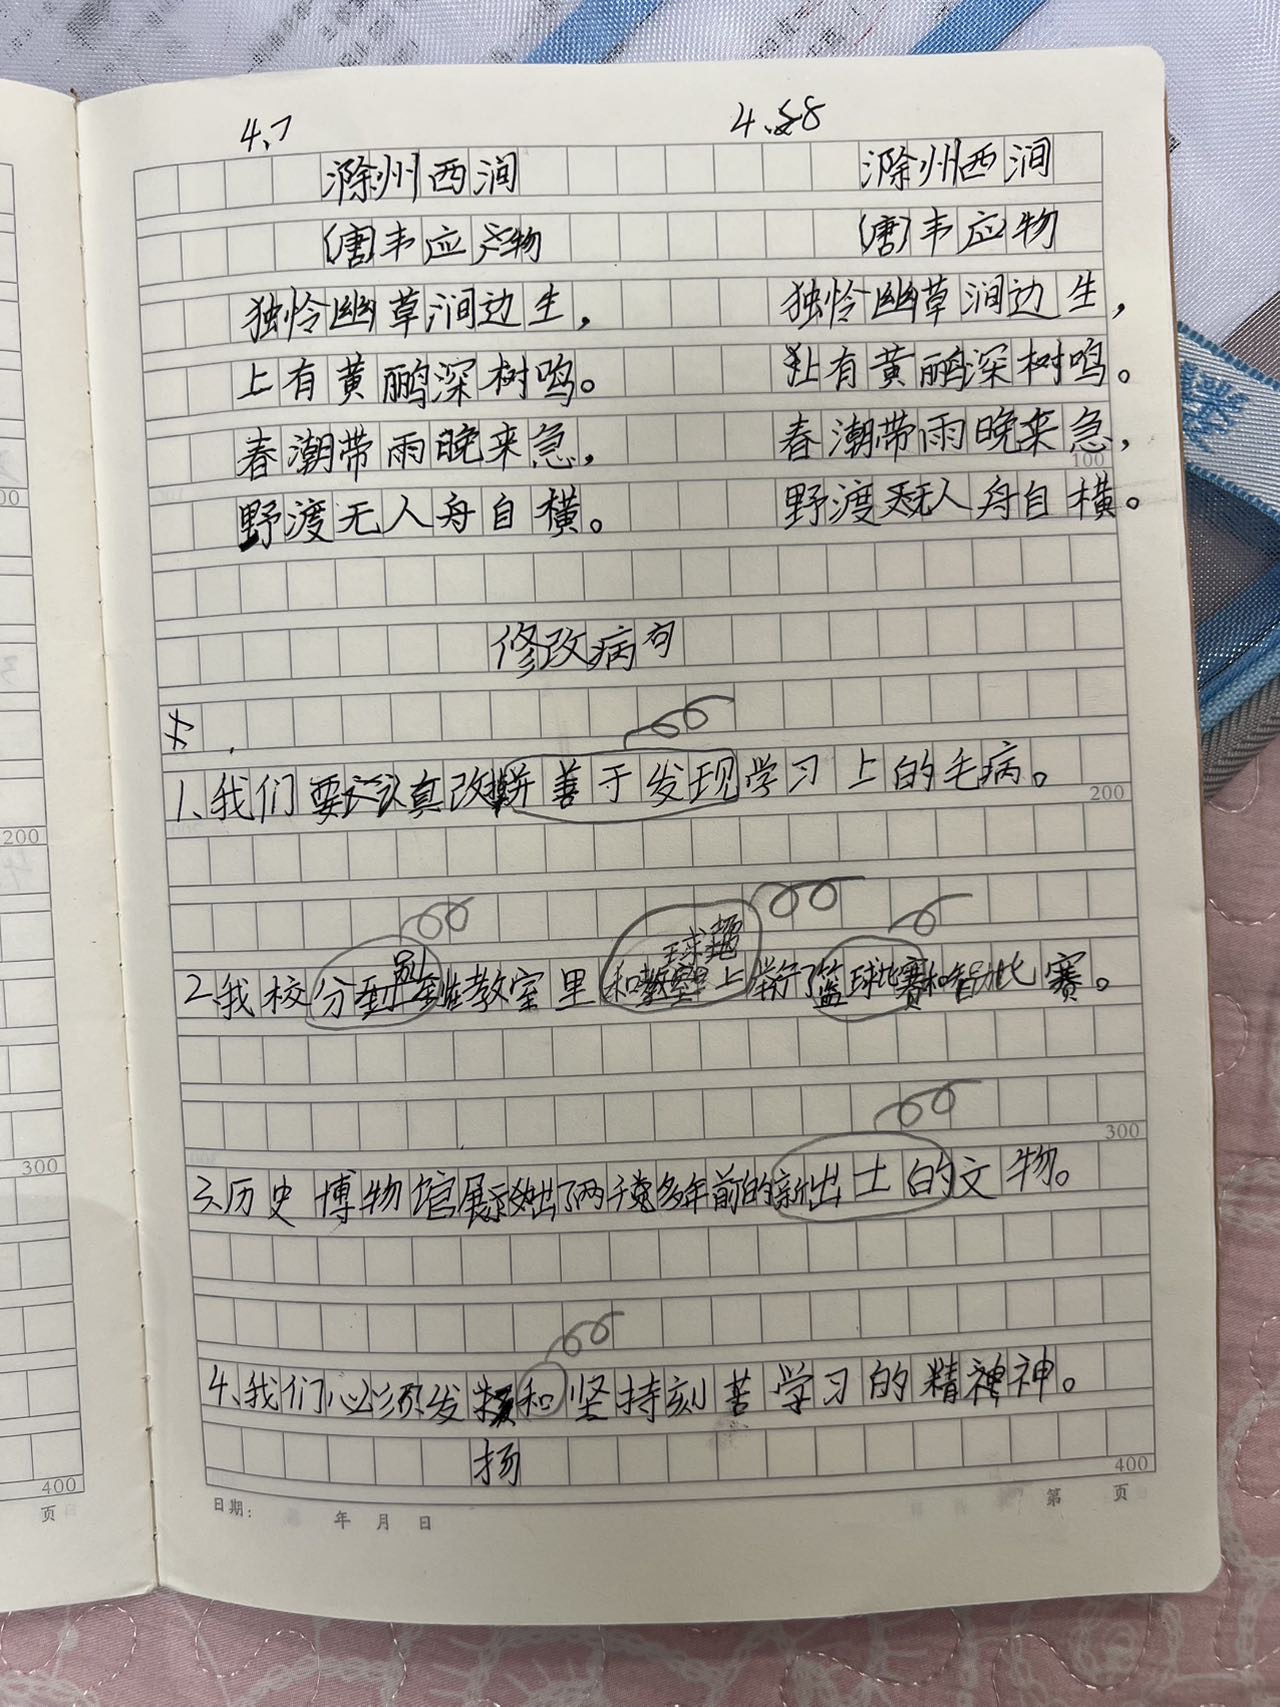 4.7
4.8
滁州西涧
滁州西涧
(唐)韦应物
(唐)韦应物
独怜幽草涧边生，
独怜幽草涧边生，
上有黄鹂深树鸣。
上有黄鹂深树鸣。
春潮带雨晚来急，
春潮带雨晚来急，
100
野渡无人舟自横。
野渡无人舟自横。
修改病句
1、我们要认真改拼善于发现学习上的毛病。
200
2、我校分别在教室里和球场上举行了篮球比赛和智力比赛。
300
3、历史博物馆展示出了两千多年前的新出土的文物。
4、我们必须发和坚持刻苦学习的精神。
扬
400
日期: 年 月 日
第 页
00
200
300
400
页